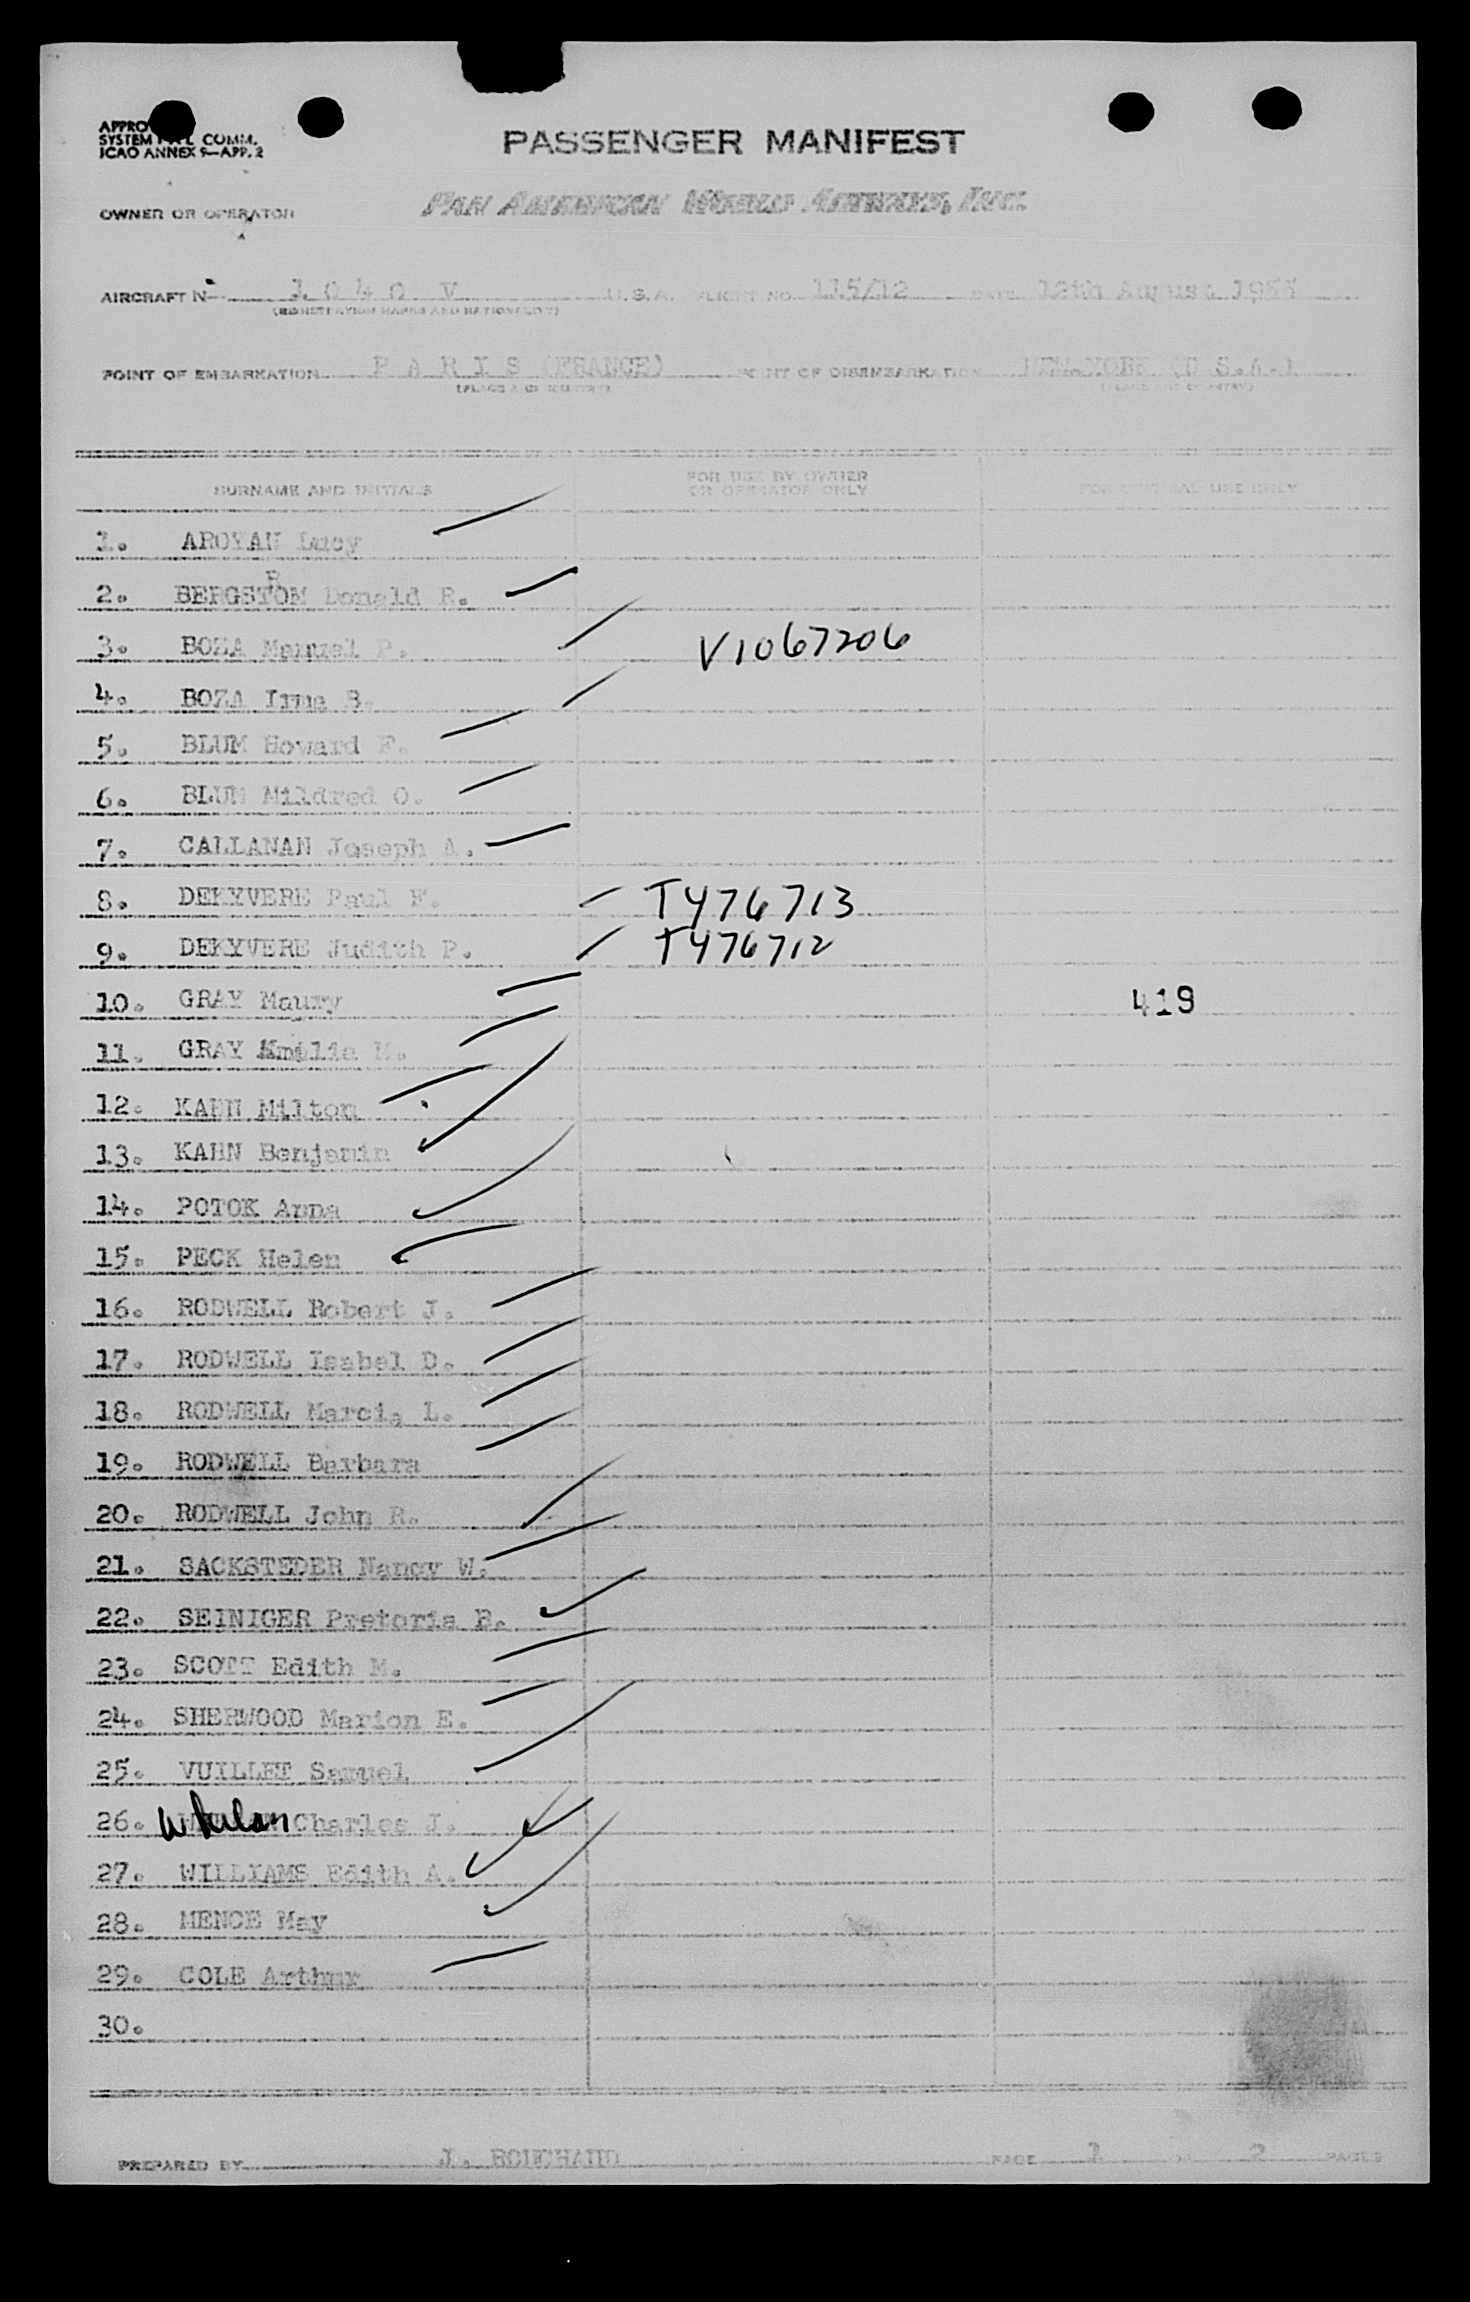 PASSENGER MANIFEST
SYSTEM COMM.
ICAO ANNEX 9—APP. 2
OWNER OR OPERATOR PAN AMERICAN WORLD AIRWAYS, INC.
AIRCRAFT No 1 0 4 0 V U.S.A. FLIGHT NO. 115/12 DATE 12th August 1955
(REGISTRATION MARKS AND NATIONALITY)
POINT OF EMBARKATION P A R I S (FRANCE) POINT OF DISEMBARKATION NEW-YORK (U.S.A.)
(PLACE AND COUNTRY) (PLACE AND COUNTRY)
SURNAME AND INITIALS FOR USE BY OWNER OR OPERATOR ONLY FOR OFFICIAL USE ONLY
1. AROYAN Lucy
R
2. BERGSTOM Donald R.
3. BOZA Manuel P. V1067206
4. BOZA Irma B.
5. BLUM Howard F.
6. BLUM Mildred O.
7. CALLANAN Joseph A.
8. DEKYVERE Paul F. T476713
9. DEKYVERE Judith P. T476712
10. GRAY Maury 419
11. GRAY Amelia M.
12. KAHN Milton
13. KAHN Benjamin
14. POTOK Anna
15. PECK Helen
16. RODWELL Robert J.
17. RODWELL Isabel D.
18. RODWELL Marcia L.
19. RODWELL Barbara
20. RODWELL John R.
21. SACKSTEDER Nancy W.
22. SEINIGER Pretoria B.
23. SCOTT Edith M.
24. SHERWOOD Marion E.
25. VUILLET Samuel
26. Whelan Charles J.
27. WILLIAMS Edith A.
28. MENCE May
29. COLE Arthur
30.
PREPARED BY J. BOUCHAUD PAGE 1 OF 2 PAGES